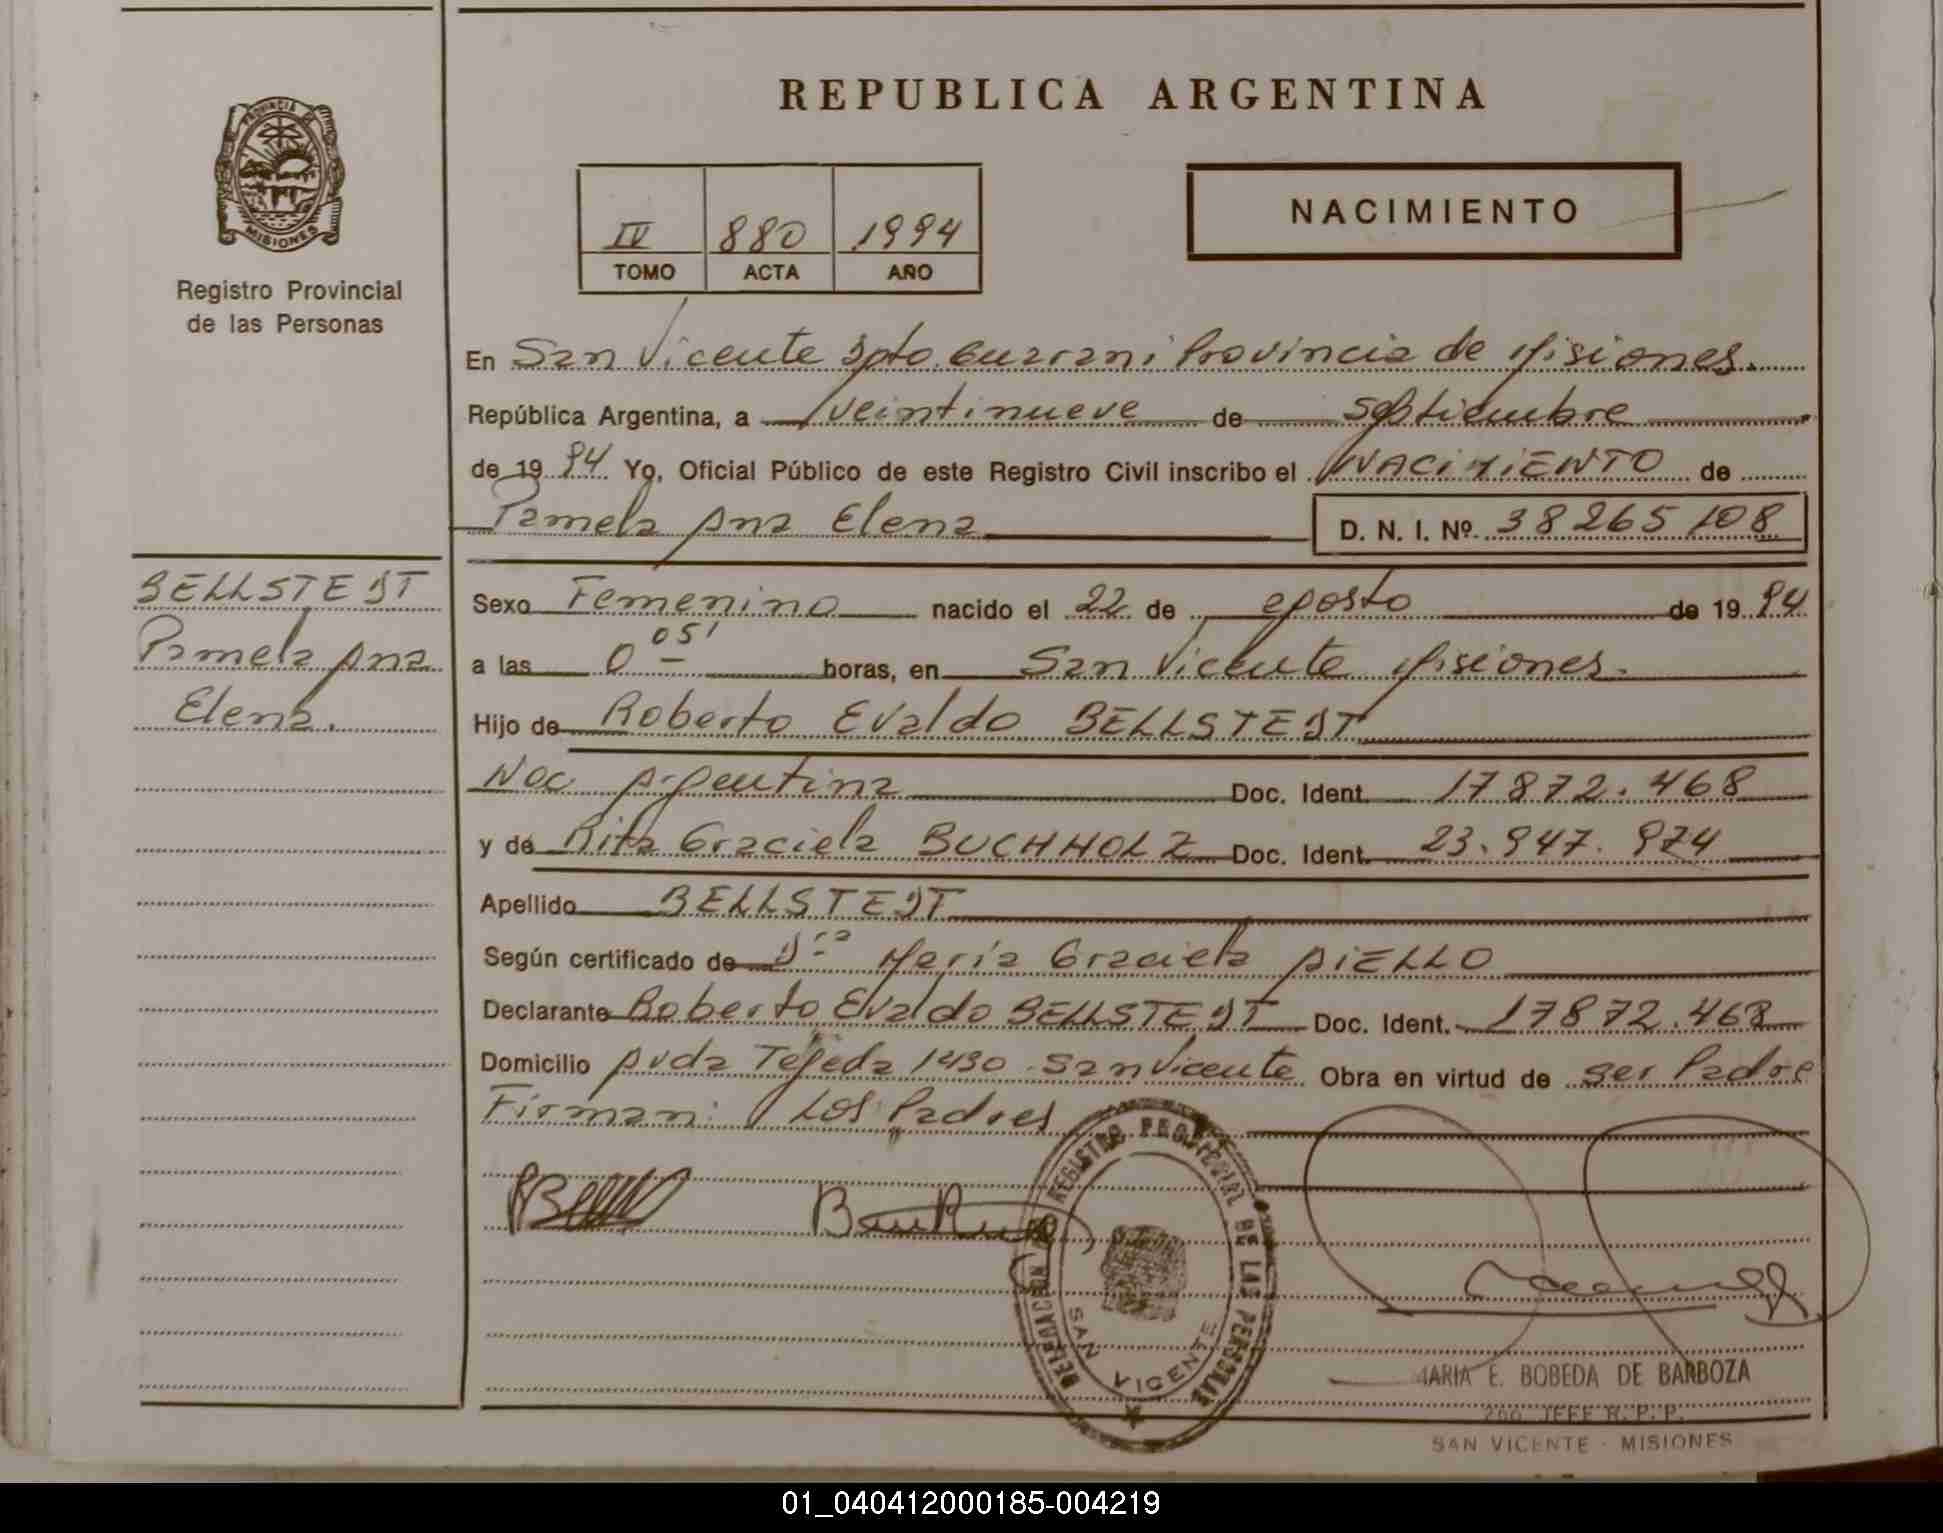 REPUBLICA ARGENTINA
PROVINCIA DE
MISIONES
Registro Provincial
de las Personas
IV 880 1994
TOMO ACTA AÑO
NACIMIENTO
En San Vicente Dpto. Guarani Provincia de Misiones.
República Argentina, a veintinueve de Septiembre
de 1994 Yo, Oficial Público de este Registro Civil inscribo el NACIMIENTO de
Pamela Ana Elena D. N. I. Nº 38265108
BELLSTEDT
Pamela Ana
Elena.
Sexo Femenino nacido el 22 de agosto de 1994
a las 0 05' horas, en San Vicente Misiones.
Hijo de Roberto Evaldo BELLSTEDT
Nac Argentina Doc. Ident. 17872.468
y de Rita Graciela BUCHHOLZ Doc. Ident. 23.947.974
Apellido BELLSTEDT
Según certificado de Dra María Graciela AIELLO
Declarante Roberto Evaldo BELLSTEDT Doc. Ident. 17872.468
Domicilio Avda Tejeda 1430 San Vicente Obra en virtud de ser Padre
Firman: Los Padres
DELEGACION DEL REGISTRO PROVINCIAL DE LAS PERSONAS
SAN VICENTE
MARIA E. BOBEDA DE BARBOZA
JEFE R. P. P.
SAN VICENTE - MISIONES
01_040412000185-004219